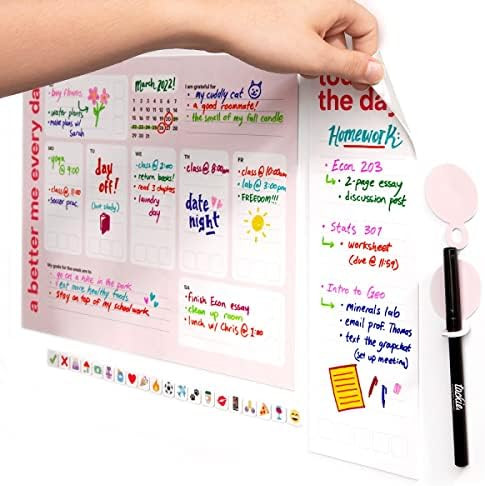 a better me every day
buy flowers
• water plants
• make plans w/
Sarah
March 2022!
I am grateful for
• my cuddly cat
• a good roommate!
• the smell of my fall candle
MO
• yoga
@ 9:00
• class
@ 11:00
• soccer prac.
TU
day
off!
(but study)
WE
• class @ 2:00
• return books!
• read 3 chapters
• laundry
day
TH
• class @ 8:00am
date
night
FR
• class @ 10:00am
• lab @ 3:00pm
• FREEDOM!!!
My goals for the week are to
• go on a hike in the park
• eat more healthy foods
• stay on top of my schoolwork
SA
• finish Econ essay
• clean up room
• lunch w/ Chris @ 1:30
the day
Homework:
• Econ 203
• 2-page essay
• discussion post
• Stats 301
• worksheet
(due @ 11:59)
• Intro to Geo
• minerals lab
• email prof. Thomas
• text the grapchat
(set up meeting)
tackie